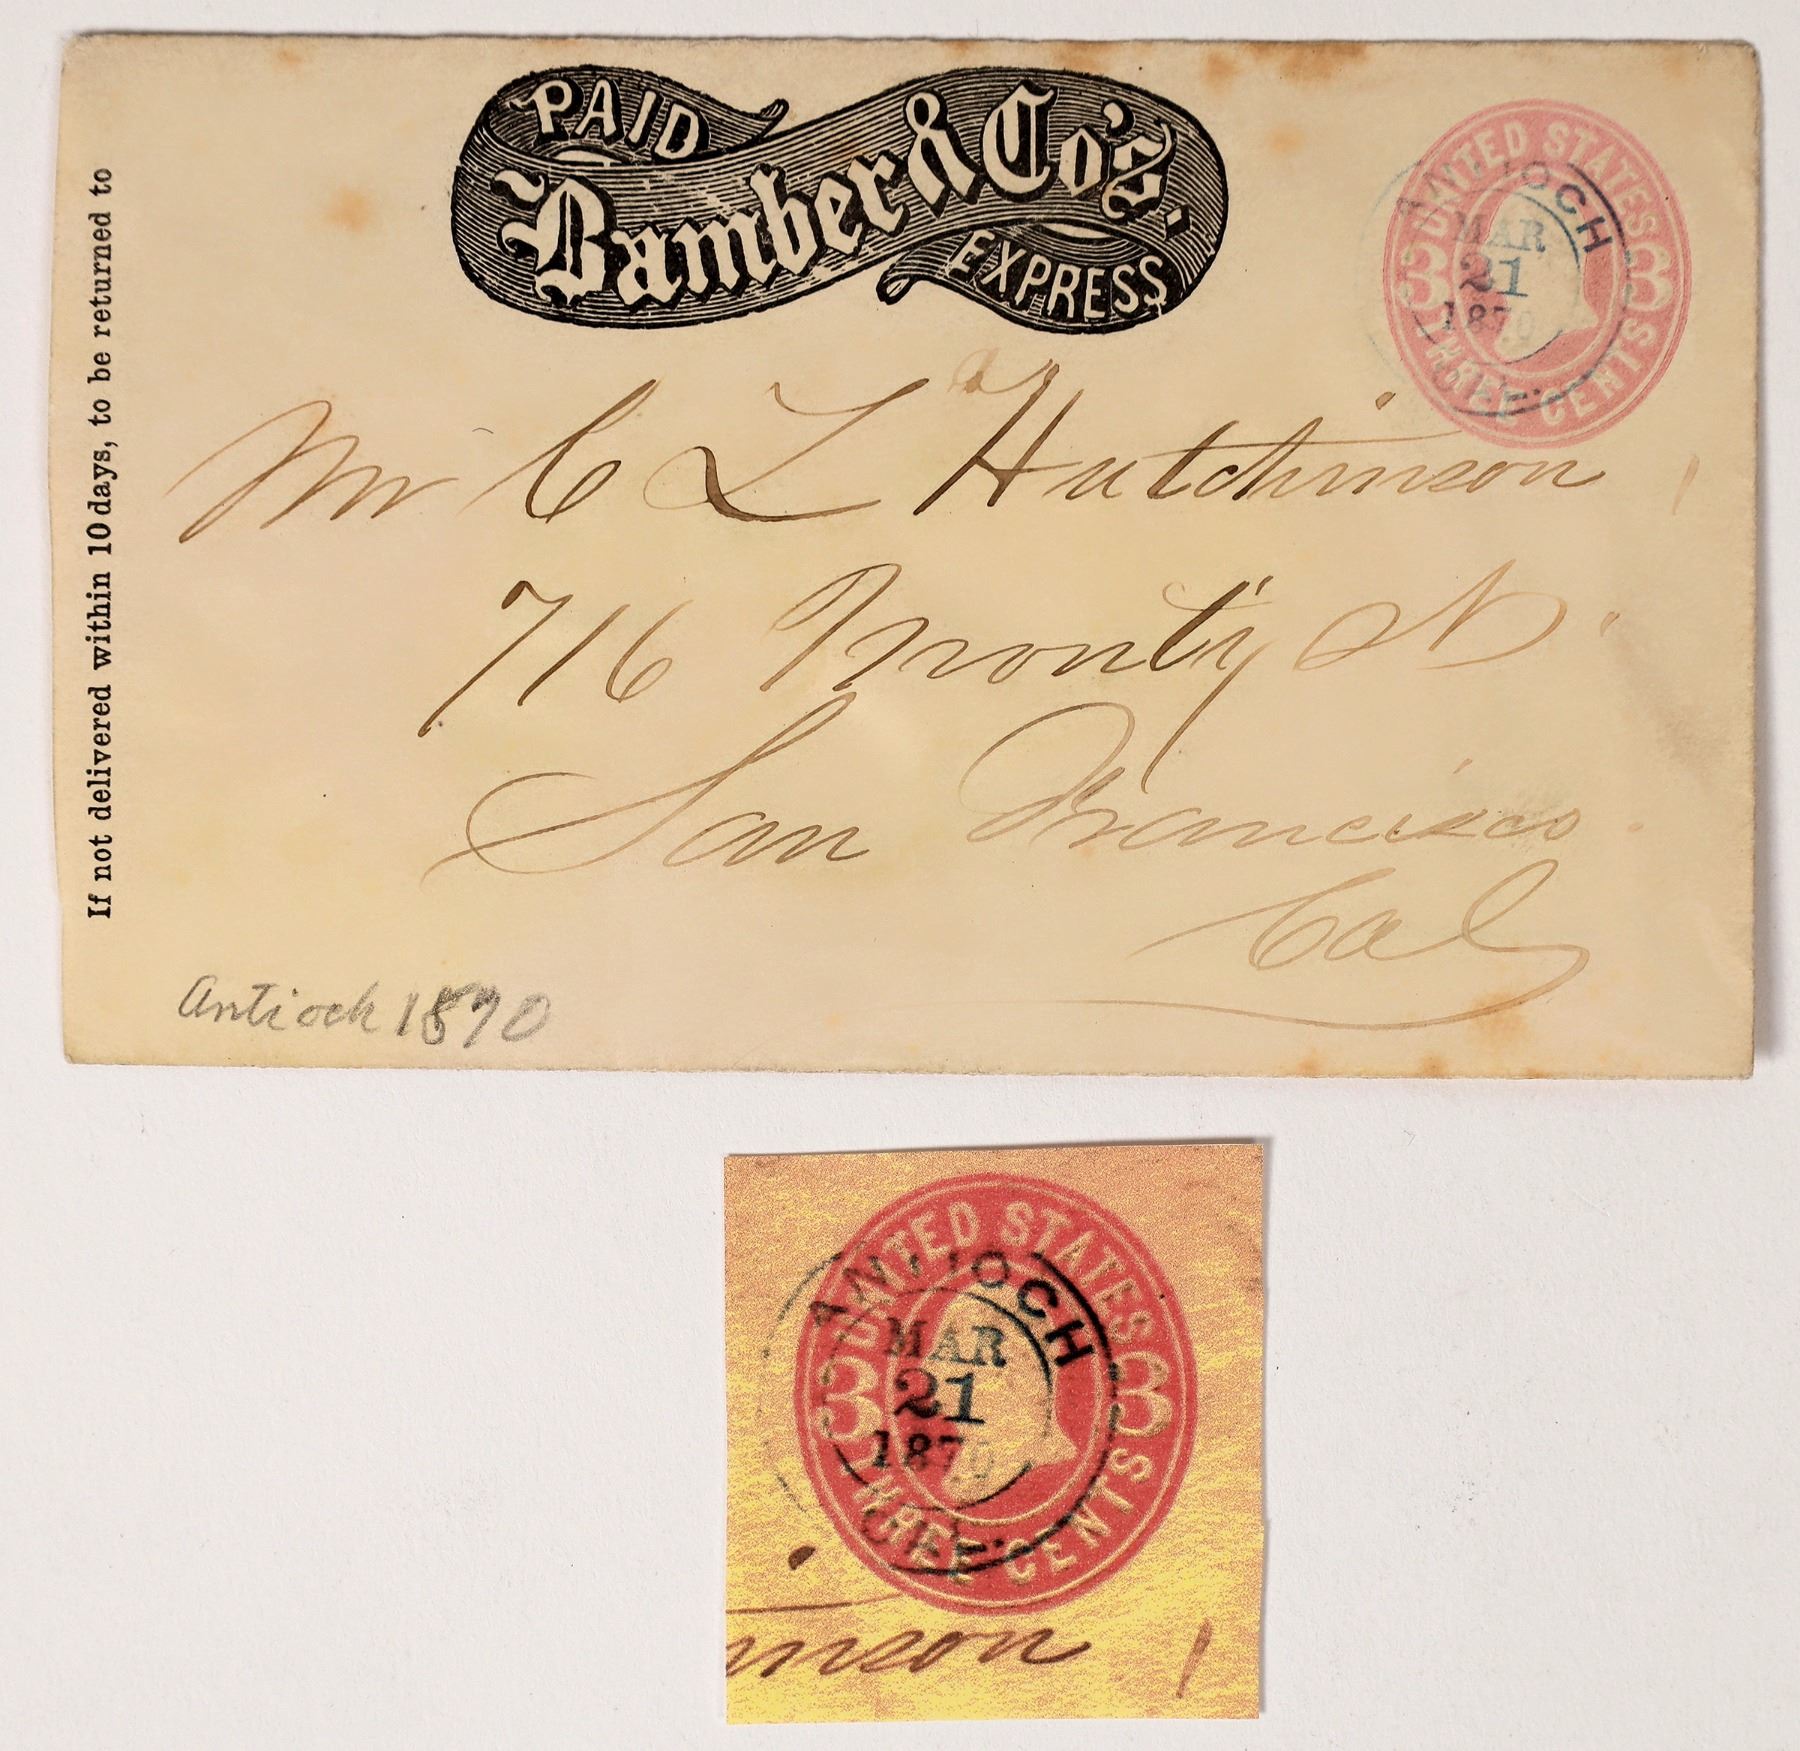 PAID
Bamber & Co's.
EXPRESS
UNITED STATES
3 3
THREE CENTS
ANTIOCH
MAR
21
1870
If not delivered within 10 days, to be returned to
Mr C L Hutchinson
716 Montỵ St.
San Francisco.
Cal
Antioch 1870
UNITED STATES
3 3
THREE CENTS
ANTIOCH
MAR
21
1870
inson